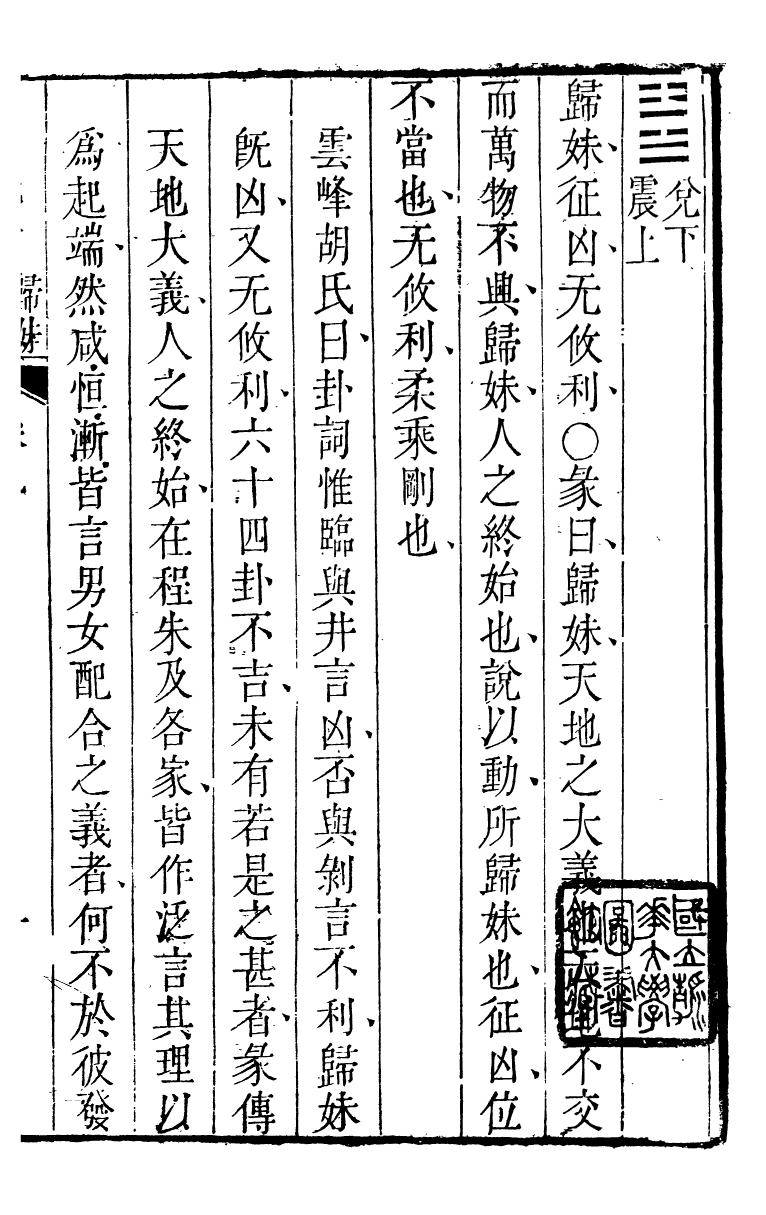 兌下
震上
歸妹、征凶、无攸利、○彖曰、歸妹、天地之大義也天地不交
而萬物不興、歸妹、人之終始也、說以動、所歸妹也、征凶、位
不當也、无攸利、柔乘剛也、
雲峰胡氏曰、卦詞惟臨與井言凶、否與剝言不利、歸妹
旣凶、又无攸利、六十四卦不吉、未有若是之甚者、彖傳
天地大義、人之終始、在程朱及各家、皆作泛言其理以
爲起端、然咸恒漸皆言男女配合之義者、何不於彼發
歸妹
國立清
華大學
圖書